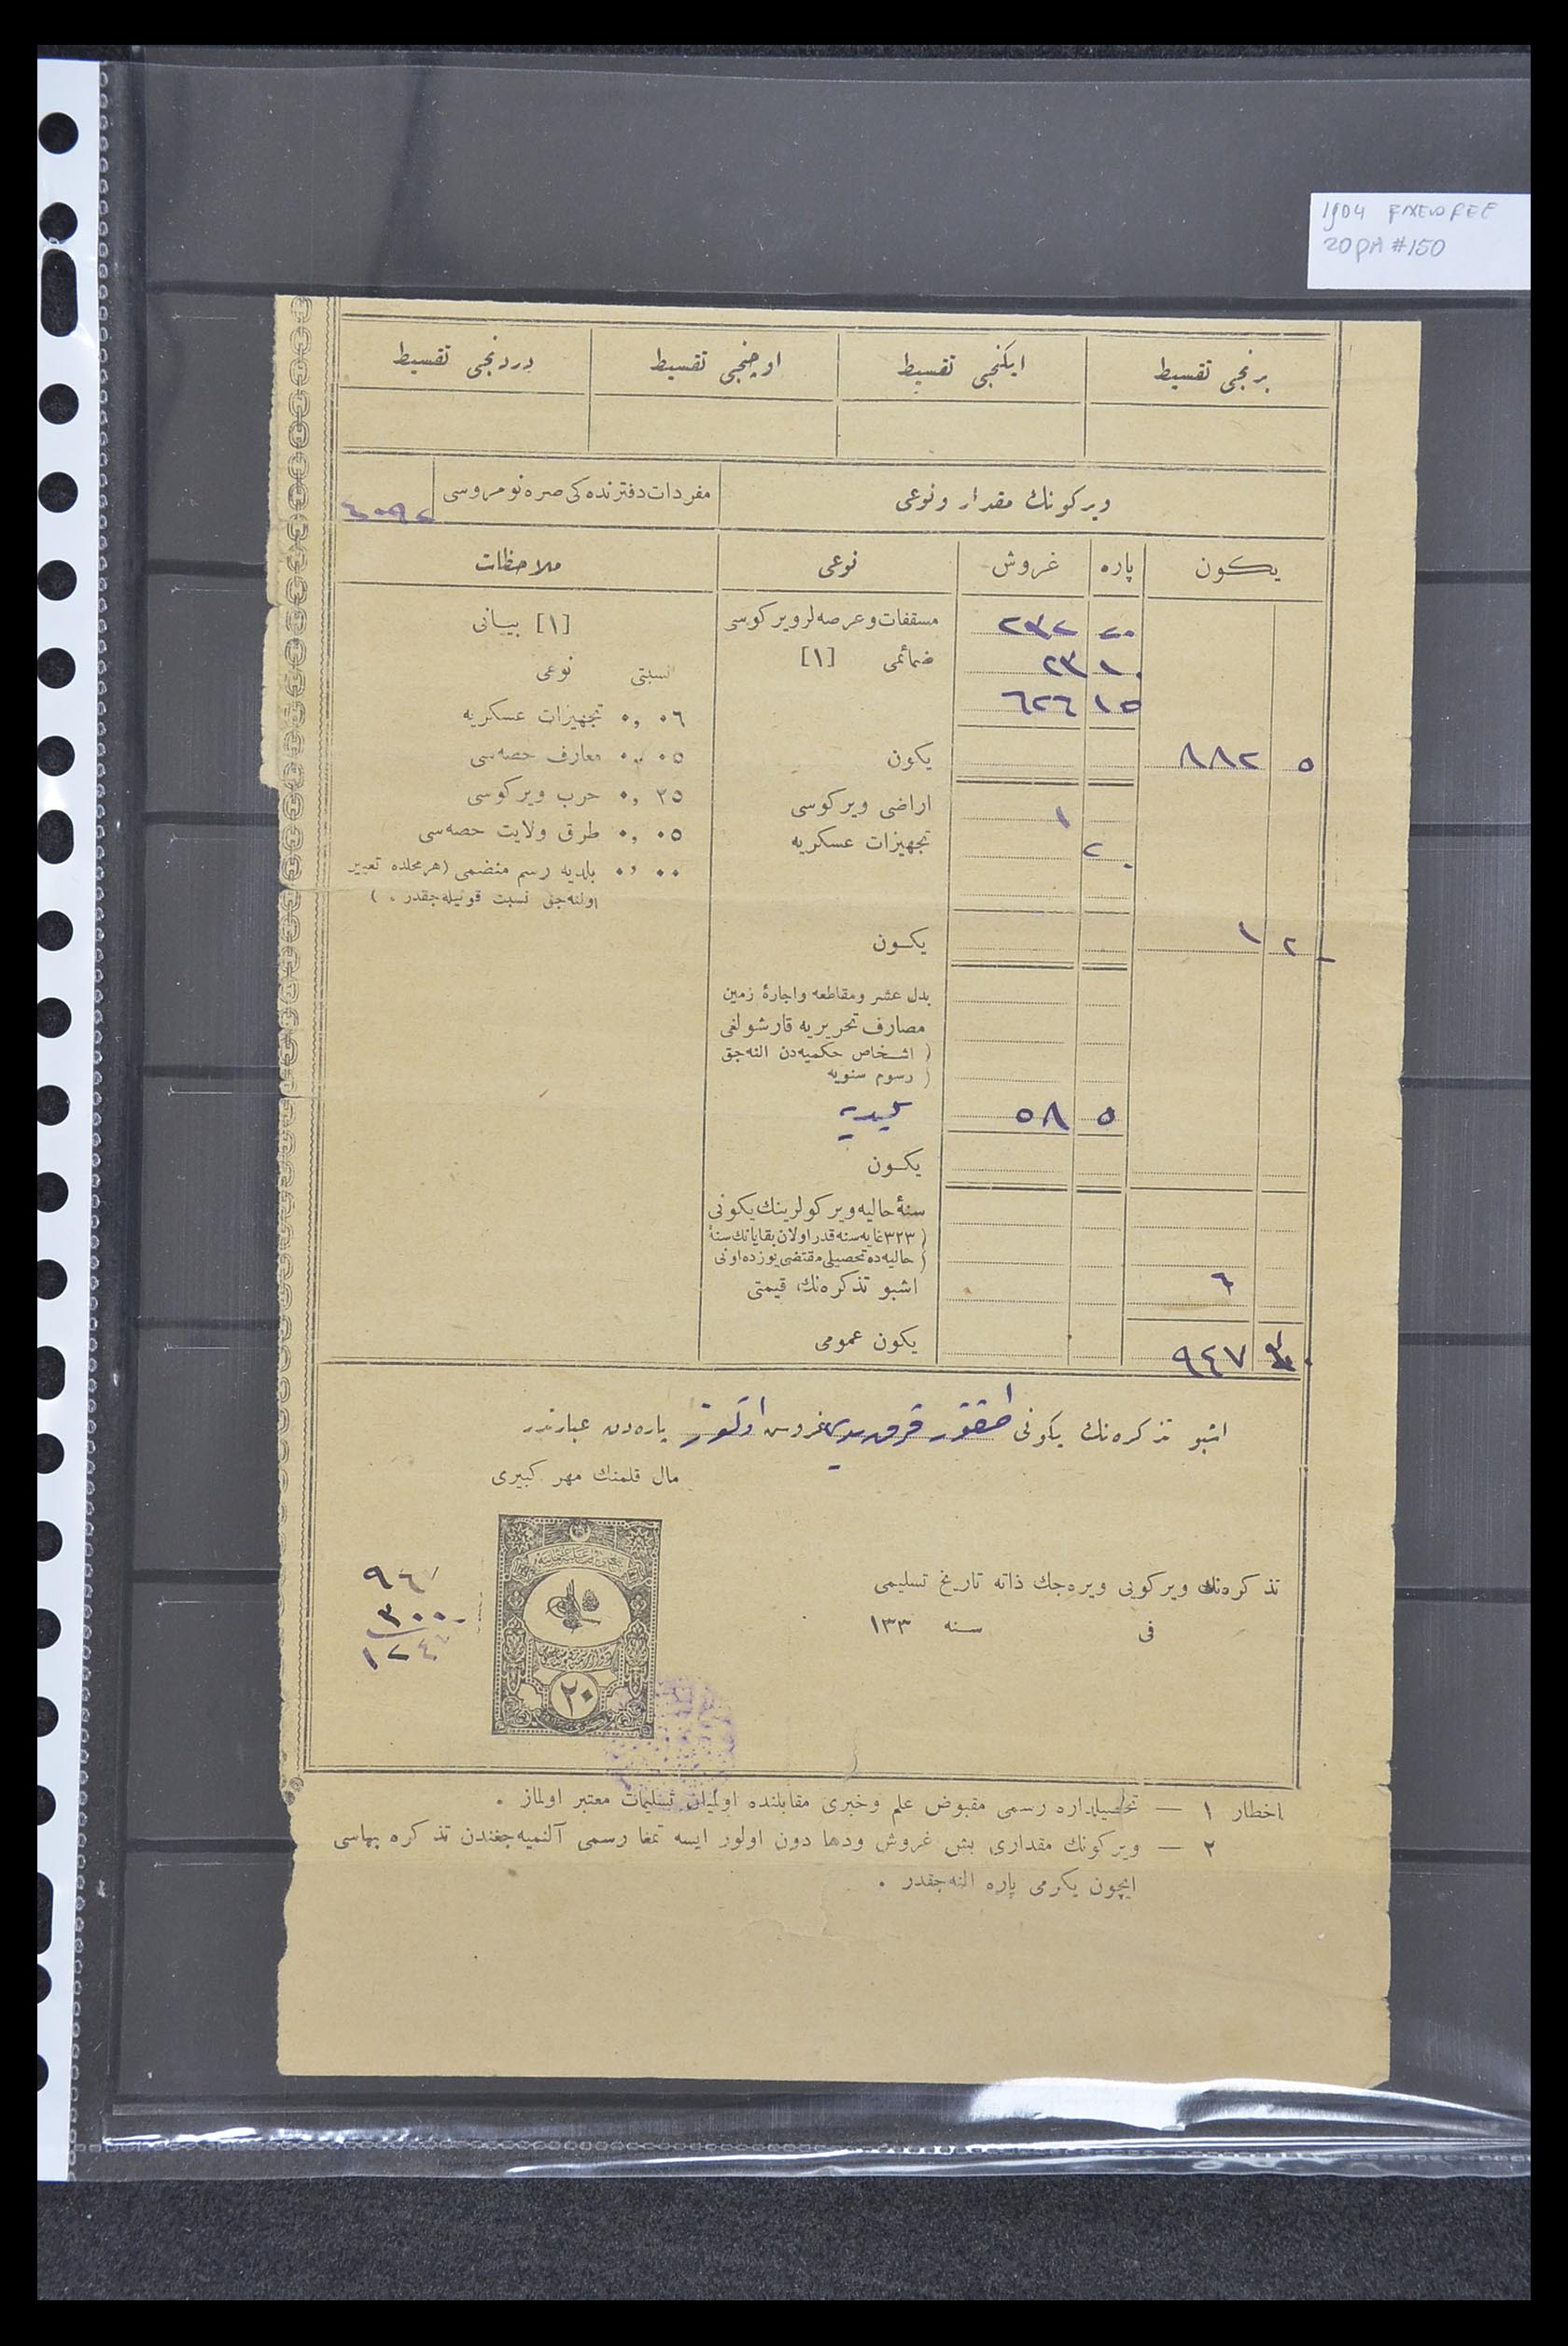 1904 FIXED FEE
20PA #150
برنجی تقسیط ایکنجی تقسیط اوچنجی تقسیط دردنجی تقسیط
ویرکونك مقدار ونوعی مفردات دفترنده‌کی صره نومروسی
یكون پاره غروش نوعی ملاحظات
٢٠ ٢٣٢ مسقفات وعرصه‌لر ویرکوسی [١] بیانی
١٠ ٢٣ ضمائمی [١] نسبتی نوعی
١٥ ٦٢٦
٠٦ ٠,٠ تجهیزات عسکریه
٥ ٨٨٢ یکون ٠٥ ٠,٠ معارف حصه‌سی
١ اراضی ویرکوسی ٢٥ ٠,٠ حرب ویرکوسی
تجهیزات عسکریه ٠٥ ٠,٠ طرق ولایت حصه‌سی
٠٠ ٠,٠ بلدیه رسم منضمی (هر محلده تعیین
اولنه‌جق نسبت قونیله‌جقدر . )
٢ ١ یکـون
بدل عشر ومقاطعه واجارهٔ زمین
مصارف تحریریه قارشولغی
( اشخاص حکمیه‌دن النه‌جق
( رسوم سنویه
٥ ٥٨
یکـون
سنهٔ حالیه ویرکولرینك یکونی
( ٣٢٣ غایه سنه قدر اولان بقایانك سنهٔ
( حالیه‌ده تحصیلی مقتضی یوزده اونی
٦ اشبو تذکره‌نك قیمتی
٩٤٧ یکون عمومی
اشبو تذکره‌نك یکونی طقوز یوز قرق یدی غروس اوتوز پاره‌دن عبارتدر
مال قلمنك مهر کبیری
تذکره‌نك ویرکویی ویره‌جك ذاته تاریخ تسلیمی
فی سـنه ١٣٣
٣٠٠
٢٠
اخطار ١ — تحصیلداره رسمی مقبوض علم وخبری مقابلنده اولمیان تسلیمات معتبر اولماز .
٢ — ویرکونك مقداری بش غروش ودها دون اولور ایسه تمغا رسمی آلنمیه‌جغندن تذکره بهاسی
ایچون یکرمی پاره النه‌جقدر .